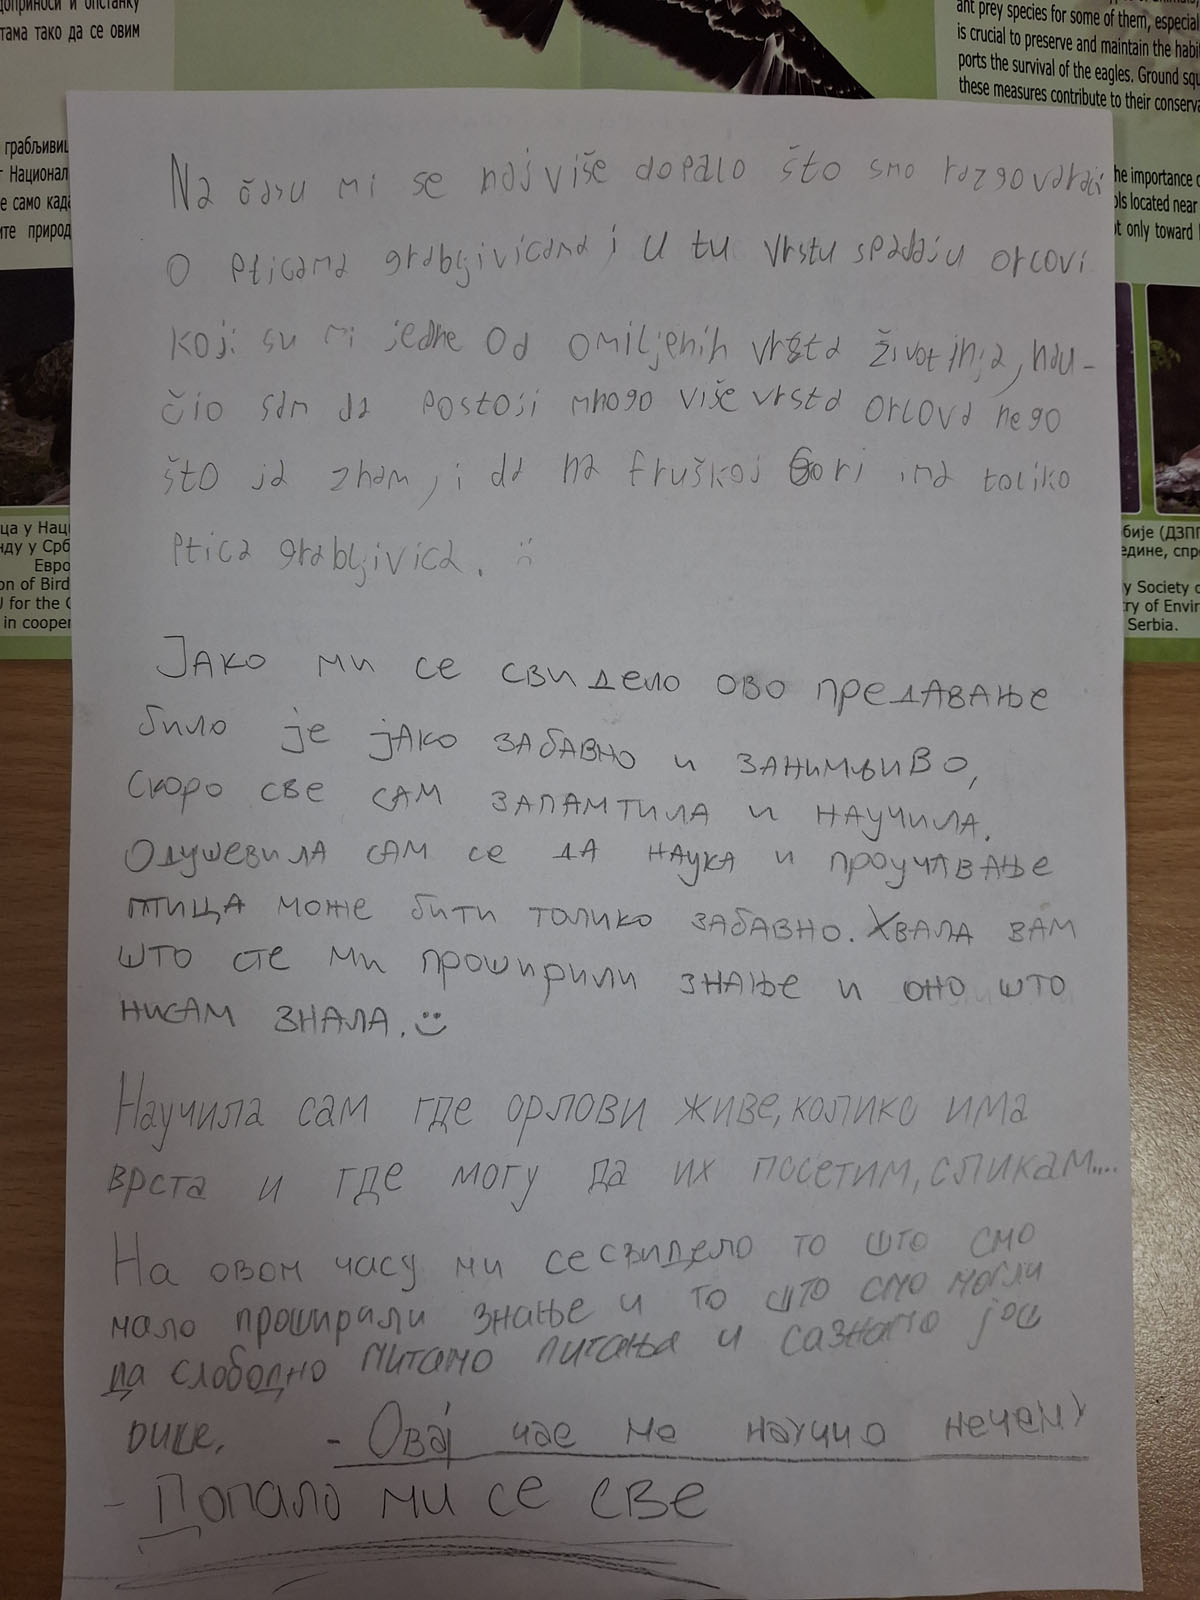 доприноси и опстанку
тама тако да се овим
грабљивиц
Национал
е само када
ите природ
ant prey species for some of them, especial
is crucial to preserve and maintain the habi
ports the survival of the eagles. Ground squ
these measures contribute to their conserva
he importance o
ols located near
t only toward
Na času mi se najviše dopalo što smo razgovarali
O Pticama grabljivicama i u tu vrstu spadaju orlovi
koji su mi jedne od omiljenih vrsta životinja, nau-
čio sam da postoji mnogo više vrsta orlova nego
što ja znam, i da na fruškoj Gori ima toliko
Ptica grabljivica.
Јако ми се свидело ово предавање
било је јако забавно и занимљиво,
скоро све сам запамтила и научила.
Одушевила сам се да наука и проучавање
птица може бити толико забавно. Хвала вам
што сте ми проширили знање и оно што
нисам знала. :)
Научила сам где орлови живе, колико има
врста и где могу да их посетим, сликам....
На овом часу ми се свидело то што смо
мало проширали знање и то што смо могли
да слободно питамо питања и сазнамо још
више. - Овај час ме научио нечему
- Допало ми се све
ца у Наци
нду у Срб
Евро
on of Bird
U for the
in cooper
бије (ДЗППС
едине, спр
y Society o
ry of Envir
Serbia.